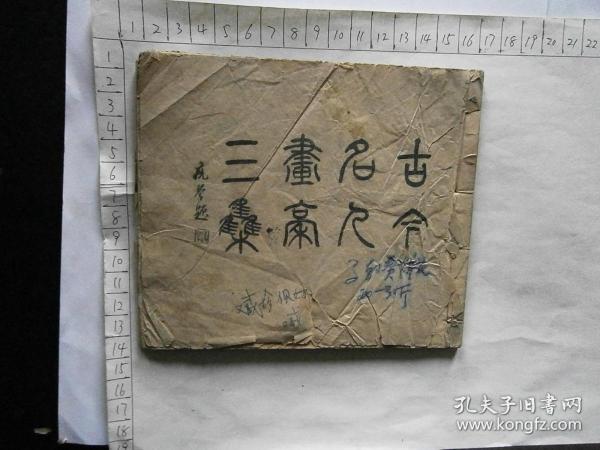 1 2 3 4 5 6 7 8 9 10 11 12 13 14 15 16 17 18 19 20 21 22
1
2
3
4
5
6
7
8
9
10
11
12
13
14
15
16
17
18
19
古今
名人
畫稾
三集
孔夫子旧书网
www.kongfz.com